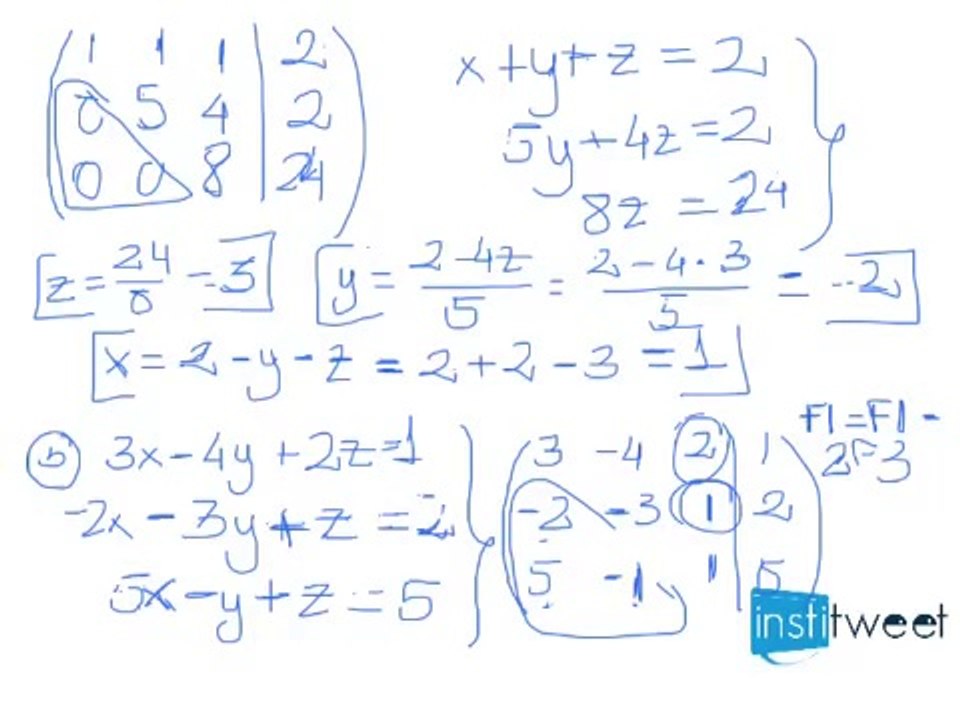 1 1 1 | 2
0 5 4 | 2
0 0 8 | 24
x + y + z = 2
5y + 4z = 2
8z = 24
z = 24/8 = 3
y = (2 - 4z)/5 = (2 - 4·3)/5 = -2
x = 2 - y - z = 2 + 2 - 3 = 1
b) 3x - 4y + 2z = 1
-2x - 3y + z = 2
5x - y + z = 5
3 -4 2 | 1
-2 -3 1 | 2
5 -1 1 | 5
F1 = F1 -
2F3
institweet